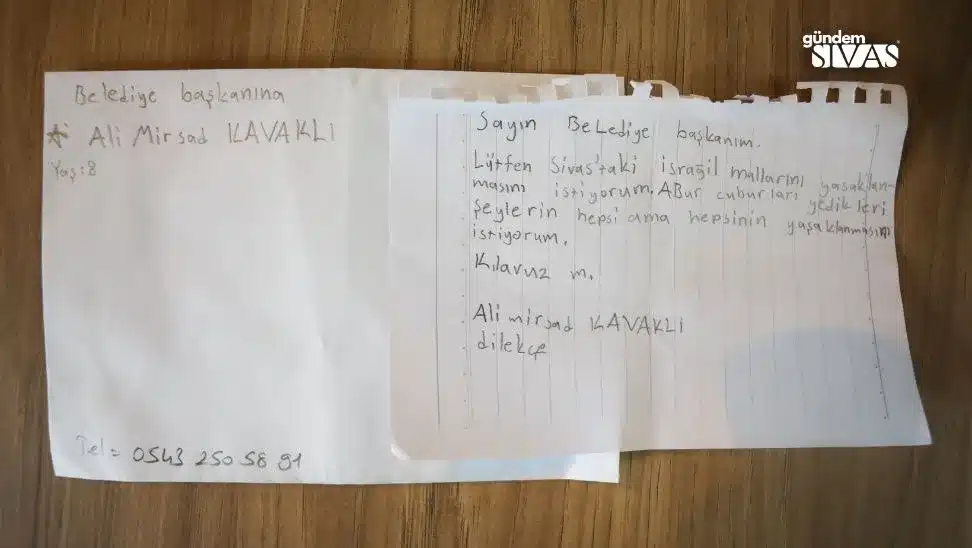 gündem
SİVAS
Belediye başkanına
Ali Mirsad KAVAKLI
Yaş:8
Tel= 0543 250 58 91
Sayın Belediye başkanım.
Lütfen Sivas'taki israğil mallarını yasaklan-
masını istiyorum. ABur cuburları yedikleri
şeylerin hepsi ama hepsinin yaşaklanmasını
istiyorum.
Kılavuz m.
Ali mirsad KAVAKLI
dilekçe